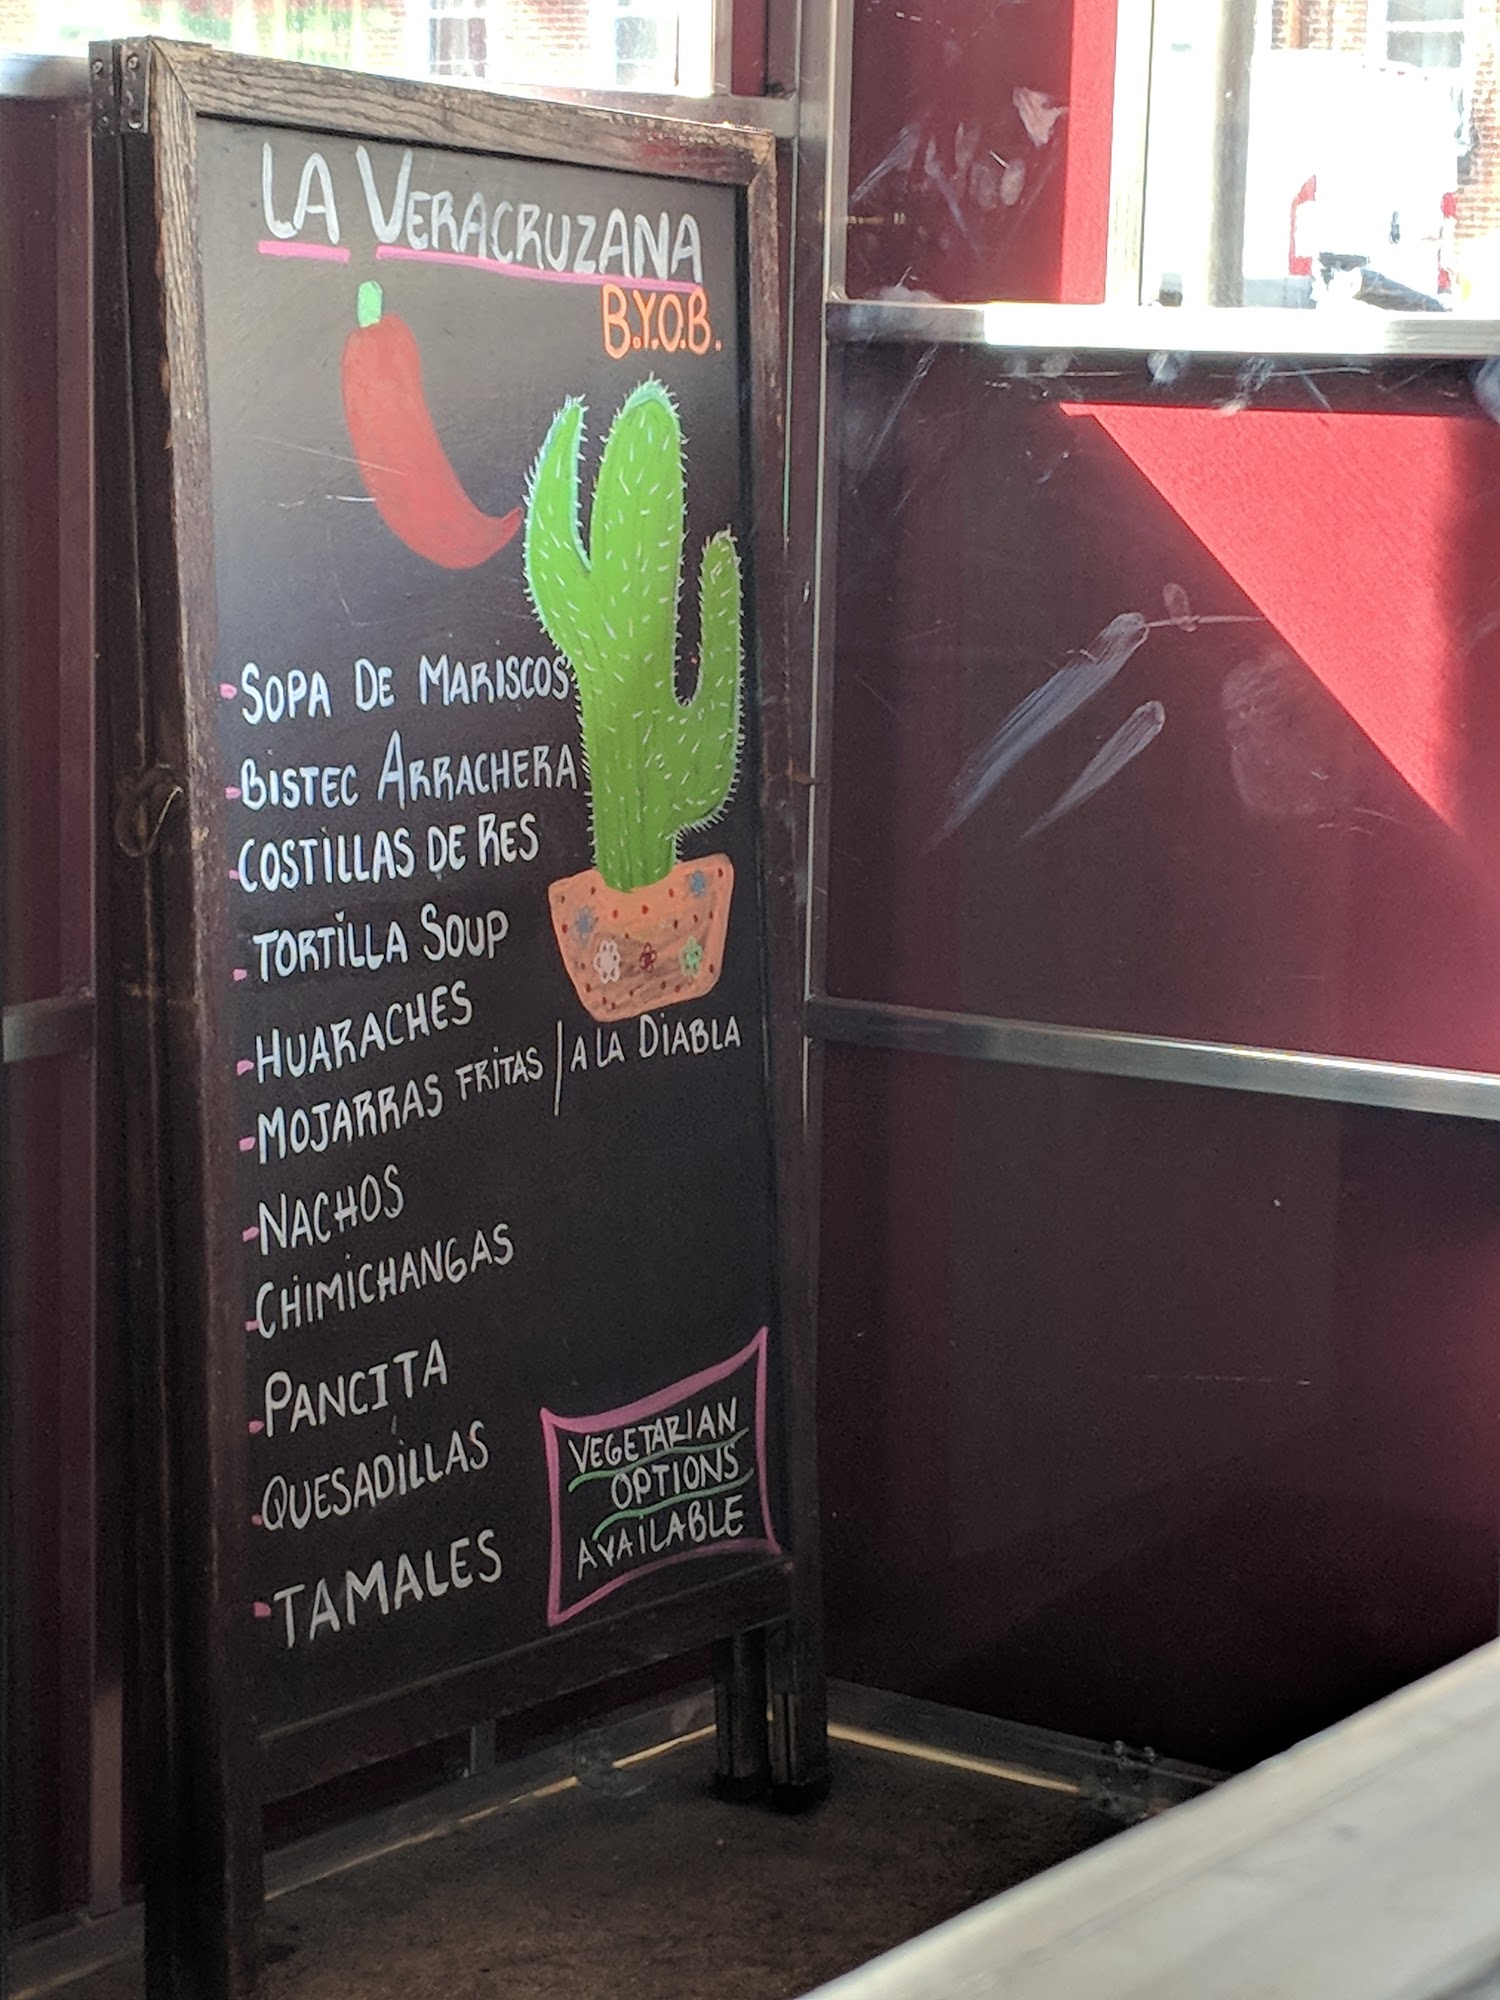 LA VERACRUZANA
B.Y.O.B.
- SOPA DE MARISCOS
- BISTEC ARRACHERA
- COSTILLAS DE RES
- TORTILLA SOUP
- HUARACHES
- MOJARRAS FRITAS / A LA DIABLA
- NACHOS
- CHIMICHANGAS
- PANCITA
- QUESADILLAS
- TAMALES
VEGETARIAN
OPTIONS
AVAILABLE